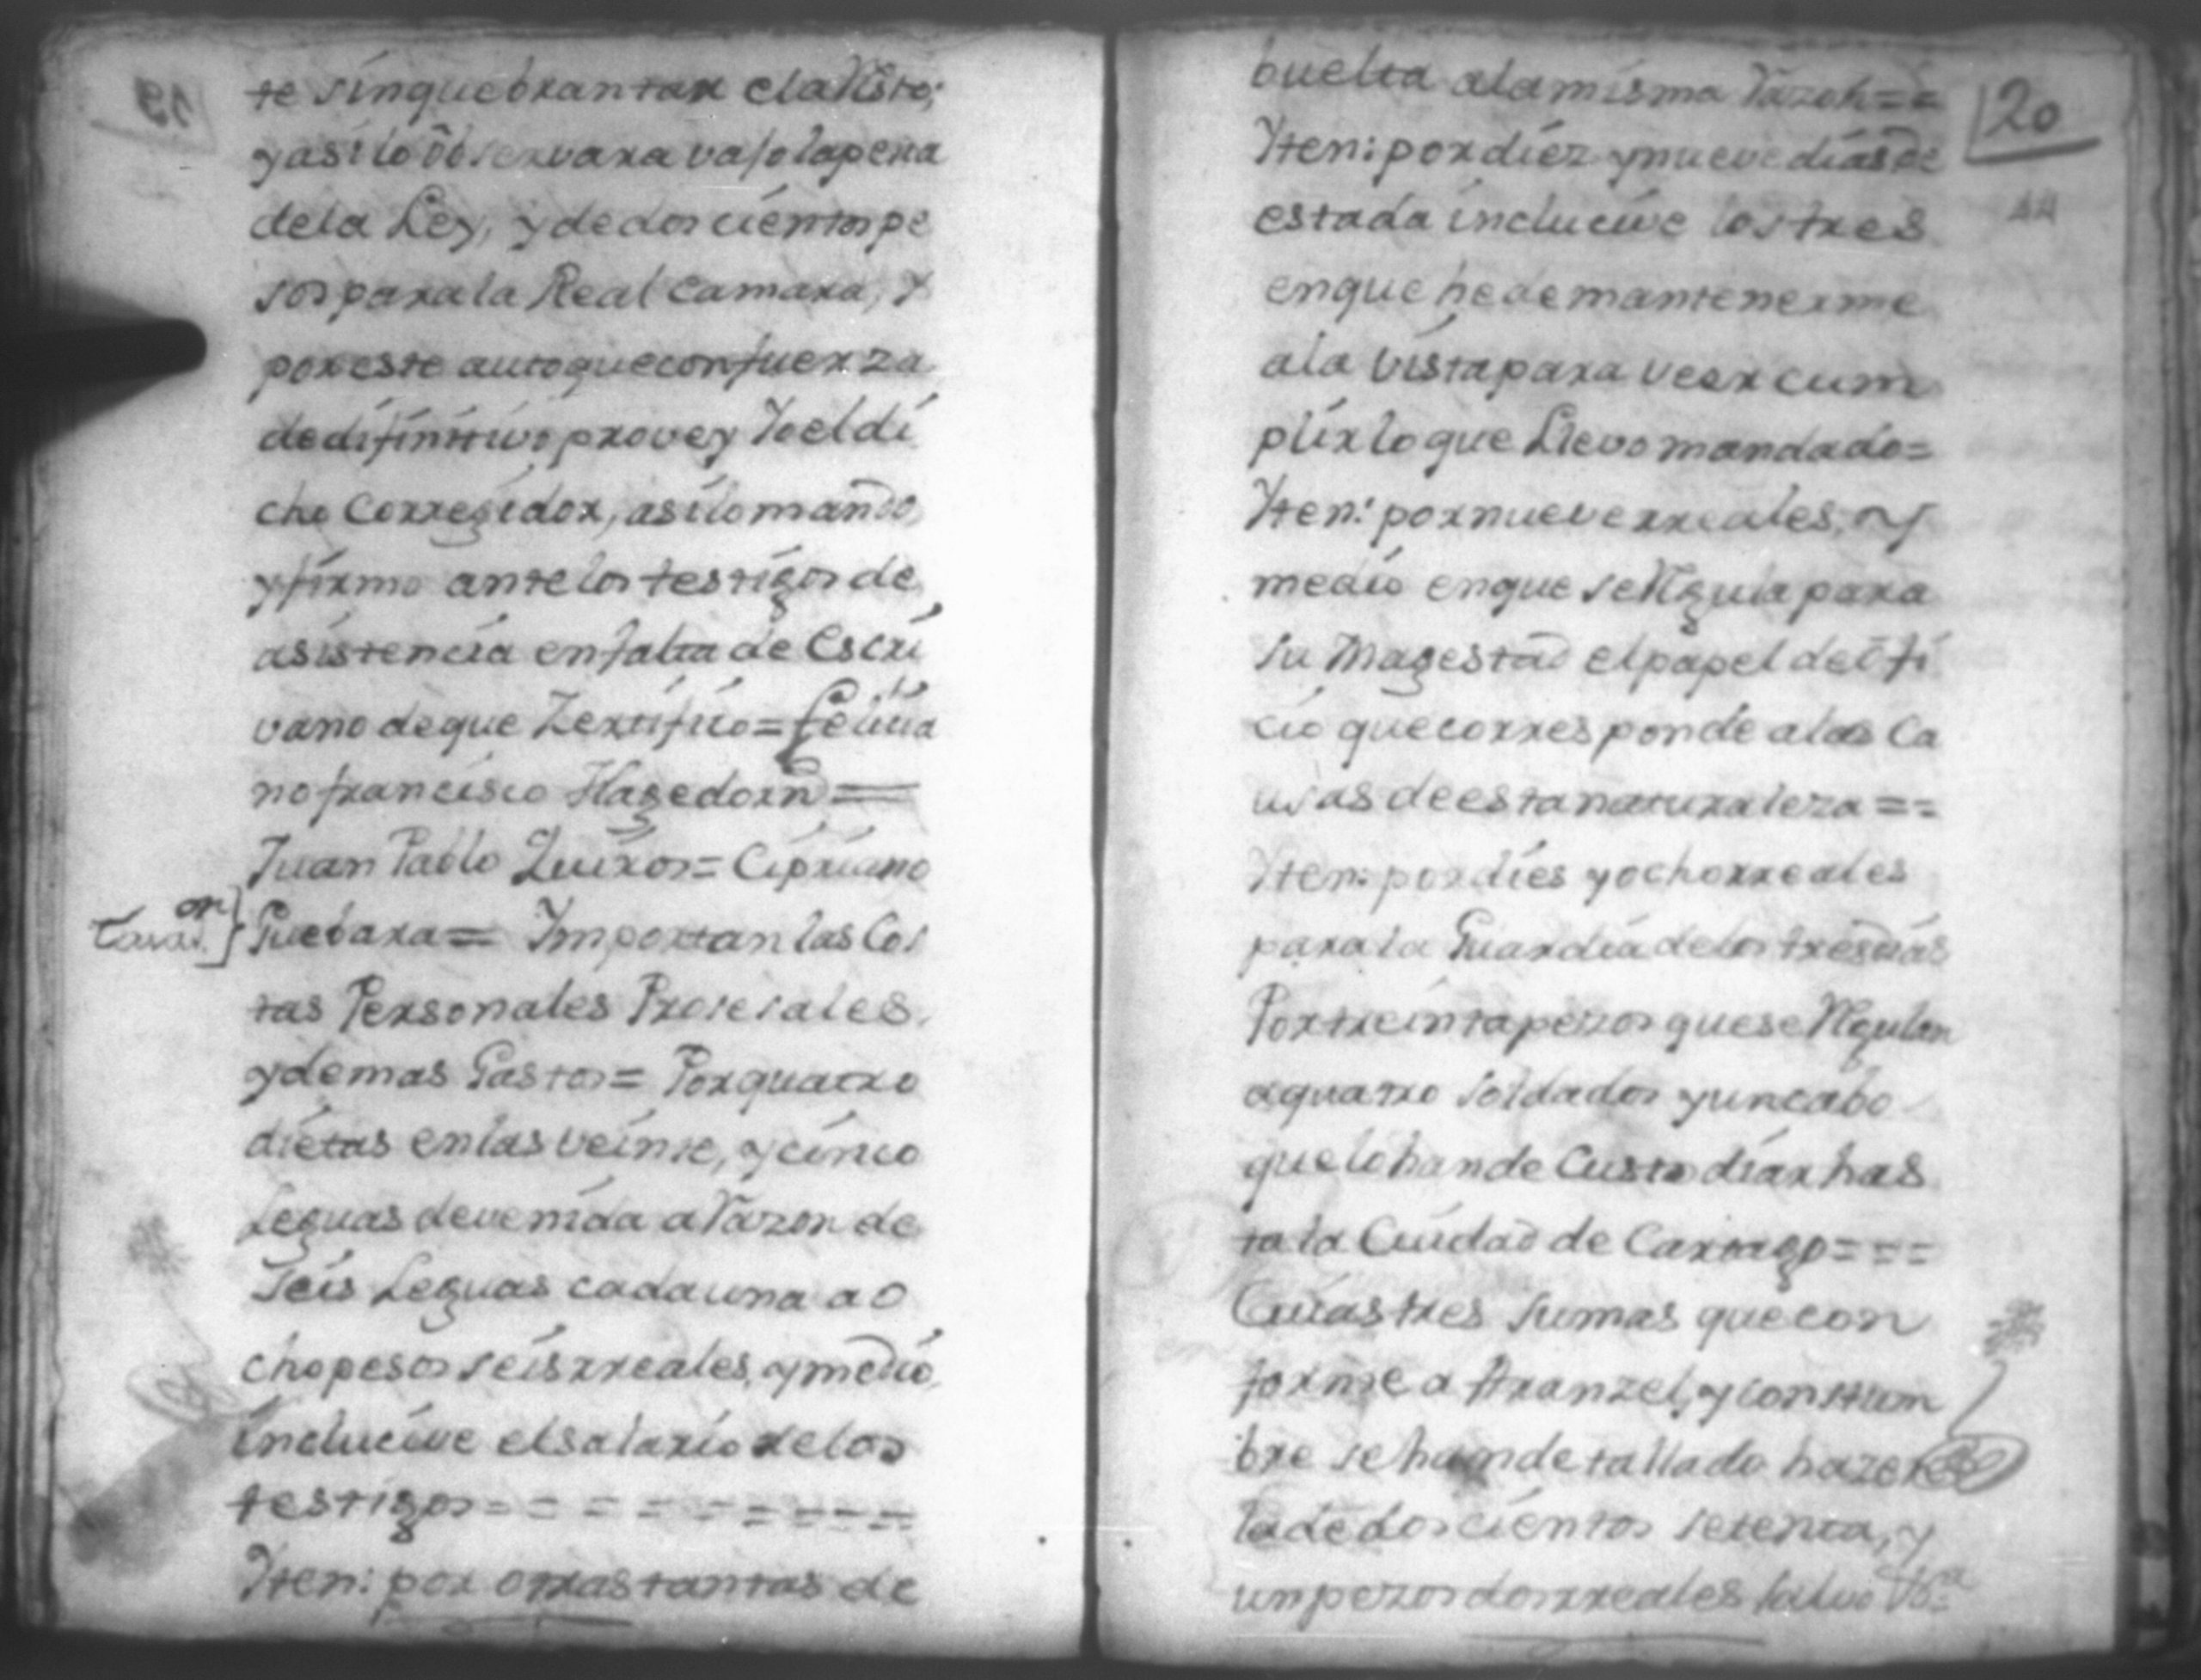 te sin quebrantar el arresto;
y asi lo observara vajo la pena
de la Ley, y de dos cientos pe
sos para la Real Camara, y
por este auto que con fuerza
de difinitivo provey Yo el di
cho Corregidor, asi lo mando,
y firmo ante los testigos de
asistencia en falta de Escri
vano de que Zertifico = Felicia
no francisco Hagedorn =
Juan Pablo Quiros = Cipriano
Tasas.on
Guebara = Ymportan las Cos
tas Personales Procesales,
y demas Gastos = Por quatro
dietas en las veinte, y cinco
Leguas de venida a razon de
Seis Leguas cada una a o
cho pesos seis rreales, y medio,
inclucive el salario de los
testigos = = = = = = = = =
Yten: por otras tantas de
20
buelta a la misma razon = =
Yten: por diez y nueve dias de
estada inclucive los tres
en que he de mantenerme
a la vista para veer cum
plir lo que Llevo mandado =
Yten: por nueve rreales, y
medio en que se regula para
su Magestad el papel de ofi
cio que corresponde a las Ca
usas de esta naturaleza = =
Yten: por dies y ocho rreales
para la Guardia de los tres dias
Por treinta pezos que se regulan
a quatro soldados y un cabo
que lo han de Custodiar has
ta la Ciudad de Cartago = = =
Cuias tres sumas que con
forme a Aranzel, y constum
bre se han detallado hazen
la de dos cientos setenta, y
un pezos dos rreales salvo